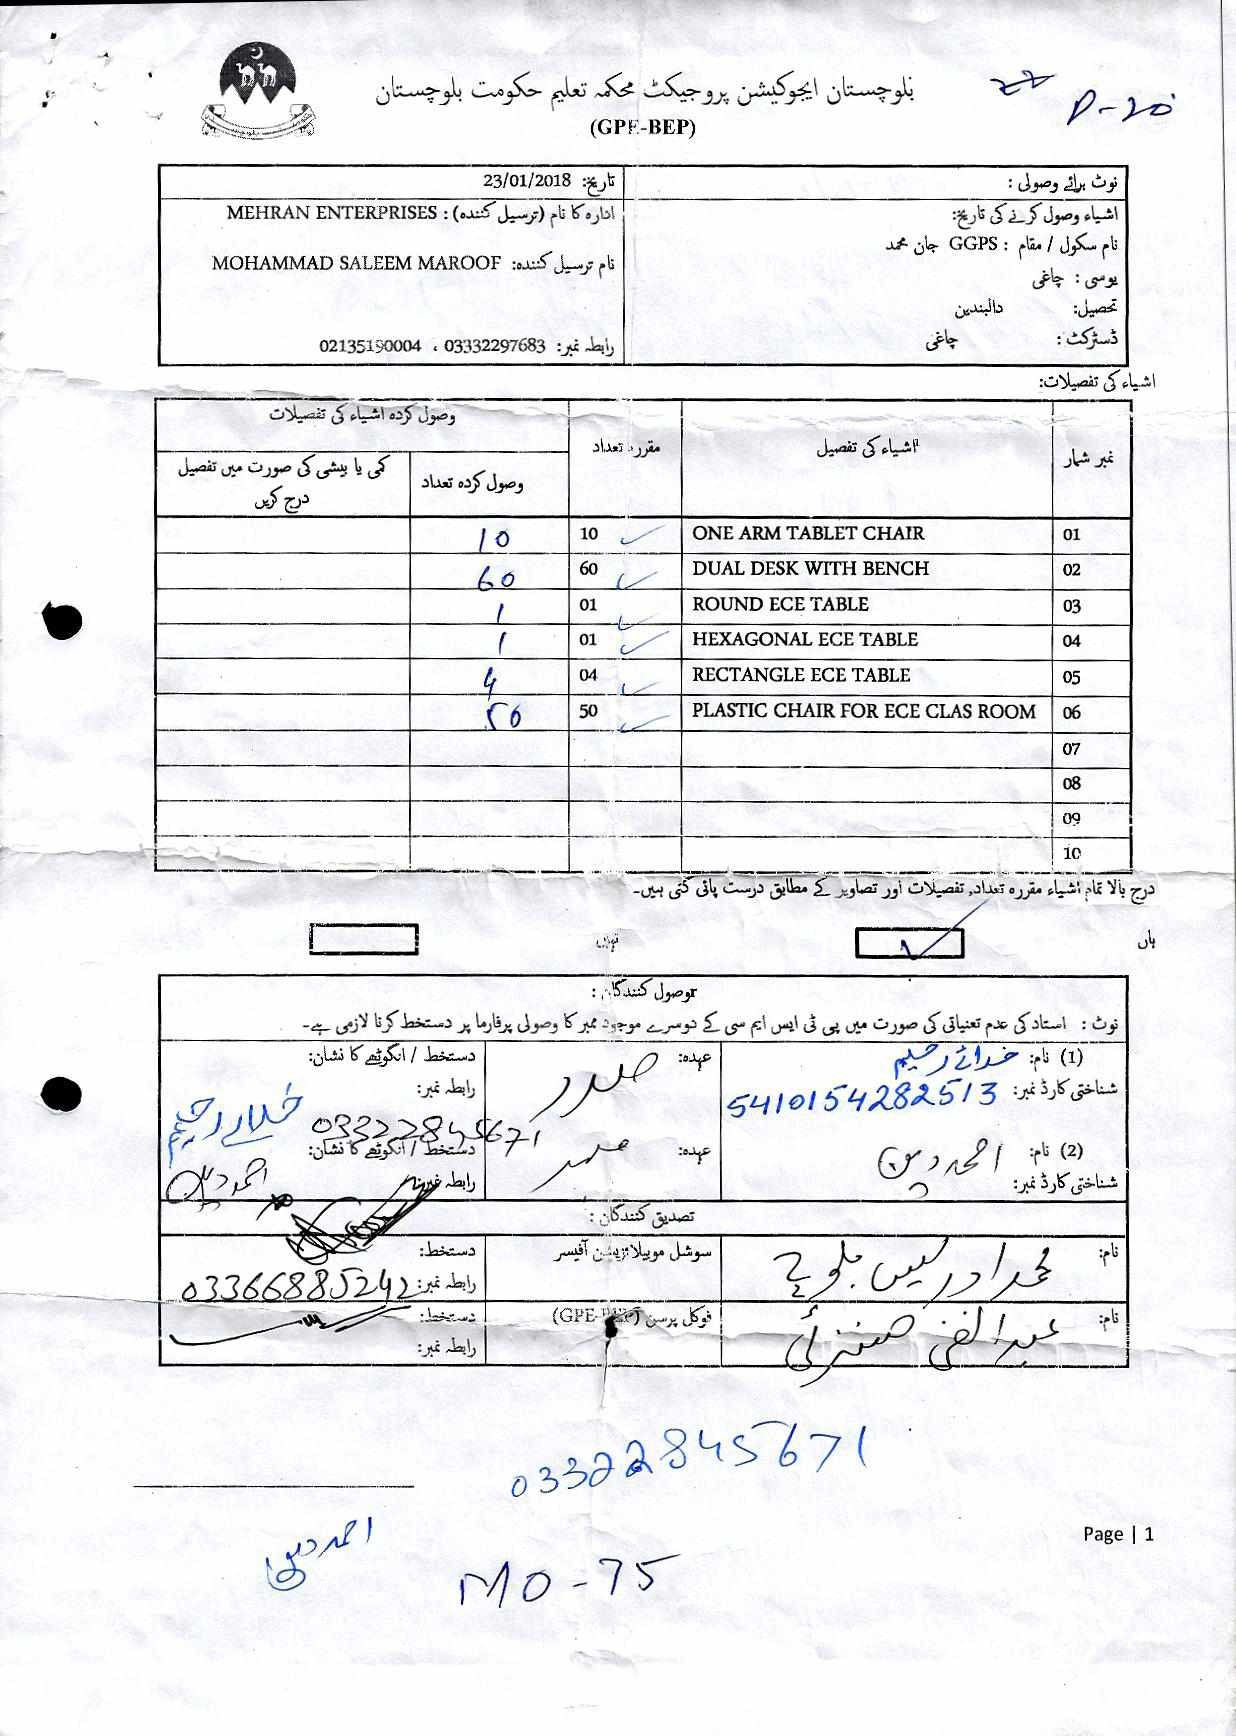 بلوچستان ایجوکیشن پروجیکٹ محکمہ تعلیم حکومت بلوچستان
(GPE-BEP)
D-20
نوٹ برائے وصولی :
تاریخ: 23/01/2018
اشیاء وصول کرنے کی تاریخ:
ادارہ کا نام (ترسیل کنندہ) : MEHRAN ENTERPRISES
نام سکول / مقام : GGPS جان محمد
نام ترسیل کنندہ: MOHAMMAD SALEEM MAROOF
یوسی : چاغی
تحصیل: دالبندین
ڈسٹرکٹ : چاغی
رابطہ نمبر: 03332297683 ، 02135190004
اشیاء کی تفصیلات:
نمبر شمار اشیاء کی تفصیل مقررہ تعداد وصول کردہ اشیاء کی تفصیلات
وصول کردہ تعداد کمی یا بیشی کی صورت میں تفصیل درج کریں
01 ONE ARM TABLET CHAIR 10 10
02 DUAL DESK WITH BENCH 60 60
03 ROUND ECE TABLE 01 1
04 HEXAGONAL ECE TABLE 01 1
05 RECTANGLE ECE TABLE 04 4
06 PLASTIC CHAIR FOR ECE CLAS ROOM 50 50
07
08
09
10
درج بالا تمام اشیاء مقررہ تعداد, تفصیلات اور تصاویر کے مطابق درست پائی گئی ہیں۔
ہاں نہیں
وصول کنندگان :
نوٹ : استاد کی عدم تعیناتی کی صورت میں پی ٹی ایس ایم سی کے دوسرے موجود ممبر کا وصولی پرفارما پر دستخط کرنا لازمی ہے۔
(1) نام: خدائے رحیم عہدہ: صدر دستخط / انگوٹھے کا نشان: خدائے رحیم
شناختی کارڈ نمبر: 5410154282513 رابطہ نمبر: 03322845671
(2) نام: احمد دین عہدہ: ممبر دستخط / انگوٹھے کا نشان: احمد دین
شناختی کارڈ نمبر: رابطہ نمبر:
تصدیق کنندگان :
نام: محمد ادریس بلوچ سوشل موبیلائزیشن آفیسر دستخط:
رابطہ نمبر: 03366885242
نام: عبدالغنی فوکل پرسن (GPE-BEP) دستخط:
رابطہ نمبر:
03322845671
احمد دین
Page | 1
MO-75